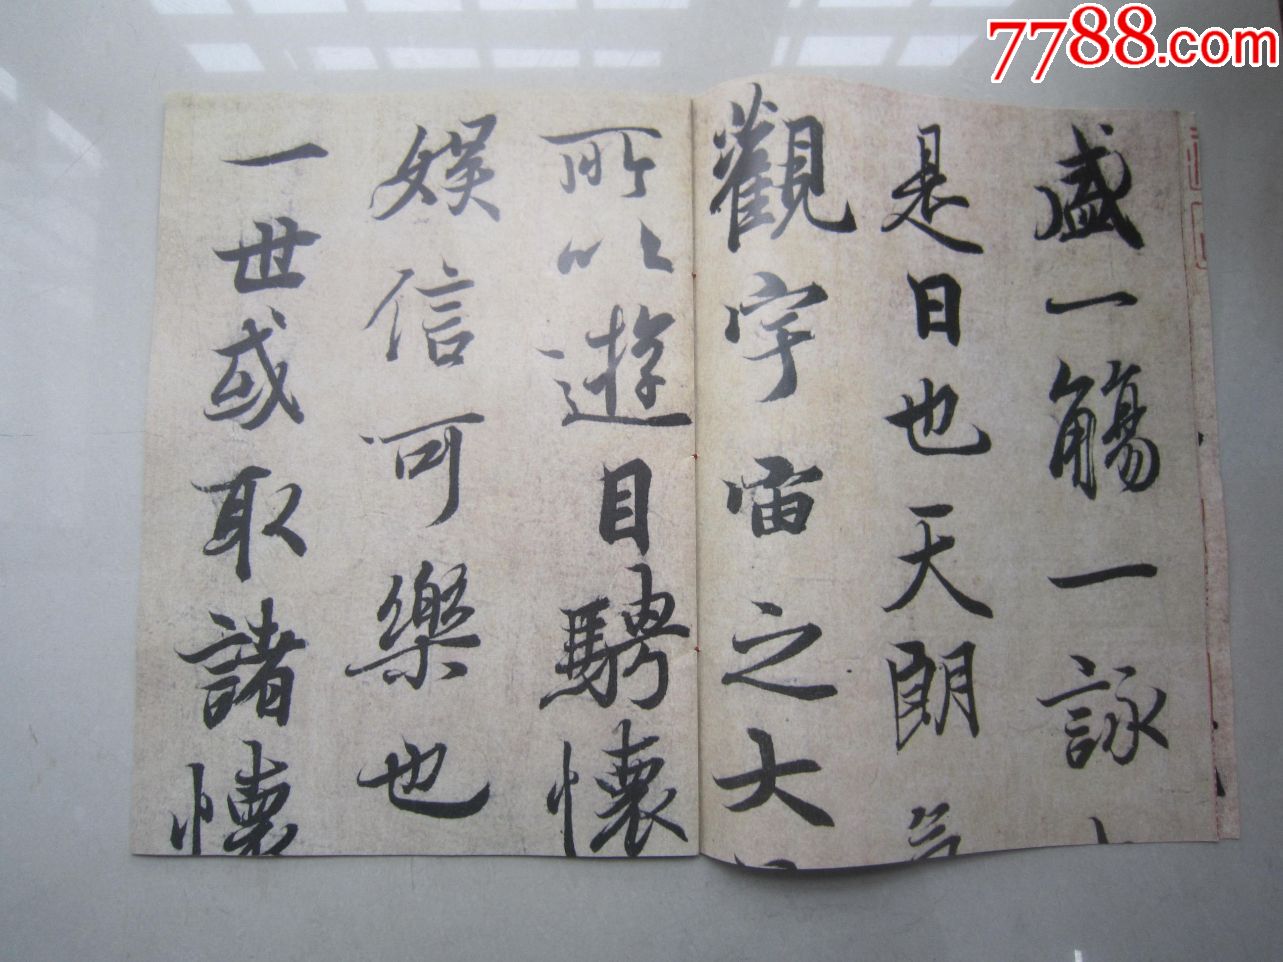 7788.com
盛一觴一詠
是日也天朗
觀宇宙之大
所以遊目騁懷
娛信可樂也
一世或取諸懷